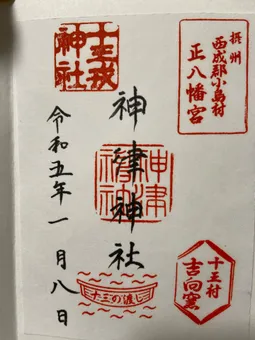 摂州
西成郡小島村
正八幡宮
十三戎
神社
神津神社
神津
神社
令和五年一月八日
十三の渡し
十三村
吉向窯